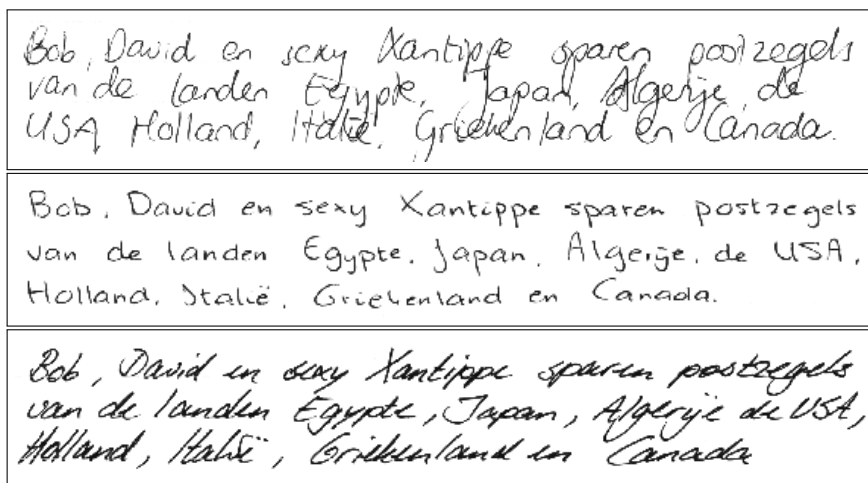 Bob, David en sexy Xantippe sparen postzegels
van de landen Egypte, Japan, Algerije, de
USA, Holland, Italië, Griekenland en Canada.
Bob, David en sexy Xantippe sparen postzegels
van de landen Egypte, Japan, Algerije, de USA,
Holland, Italië, Griekenland en Canada.
Bob, David en sexy Xantippe sparen postzegels
van de landen Egypte, Japan, Algerije de USA,
Holland, Italië, Griekenland en Canada